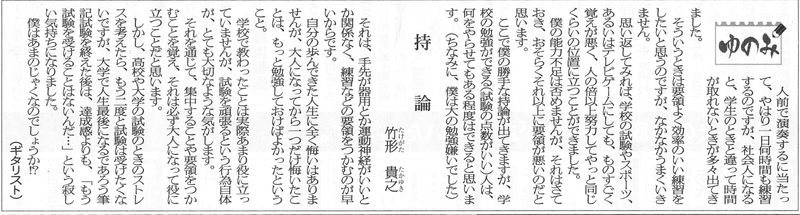 ゆのみ
持論
竹形 貴之
たけがた たかゆき
人前で演奏するに当たっ
て、やはり一日何時間も練習
するのですが、社会人になる
と、学生のときと違って時間
が取れないときが多々出てき
ました。
そういうときは要領よく効率のいい練習を
したいと思うのですが、なかなかうまくいき
ません。
思い返してみれば、学校の試験やスポーツ、
あるいはテレビゲームにしても、ものすごく
覚えが悪く、人の倍以上努力してやっと同じ
くらいの位置に立つことができました。
僕の能力不足は否めませんが、それはさて
おき、おそらくそれ以上に要領が悪いのだと
思います。
ここで僕の勝手な持論が出てきますが、学
校の勉強ができる(試験の点数がいい)人は、
何をやらせてもある程度はできると思いま
す。(ちなみに、僕は大の勉強嫌いでした)
それは、手先が器用とか運動神経がいいと
か関係なく、練習などの要領をつかむのが早
いからです。
自分の歩んできた人生に全く悔いはありま
せんが、大人になってから一つだけ悔いたこ
とは、もっと勉強しておけばよかったという
こと。
学校で教わったことは実際あまり役に立っ
ていませんが、試験を頑張るという行為自体
が、とても大切なような気がします。
それを通じて、集中することや要領をつか
むことを覚え、それは必ず大人になって役に
立つことだと思います。
しかし、高校や大学の試験のときのストレ
スを考えたら、もう二度と試験は受けたくな
いですが、大学で人生最後になるであろう筆
記試験を終えた後は、達成感よりも、「もう
試験を受けることはないんだ…」という寂し
い気持ちになりました。
僕はあまのじゃくなのでしょうか!?
(ギタリスト)